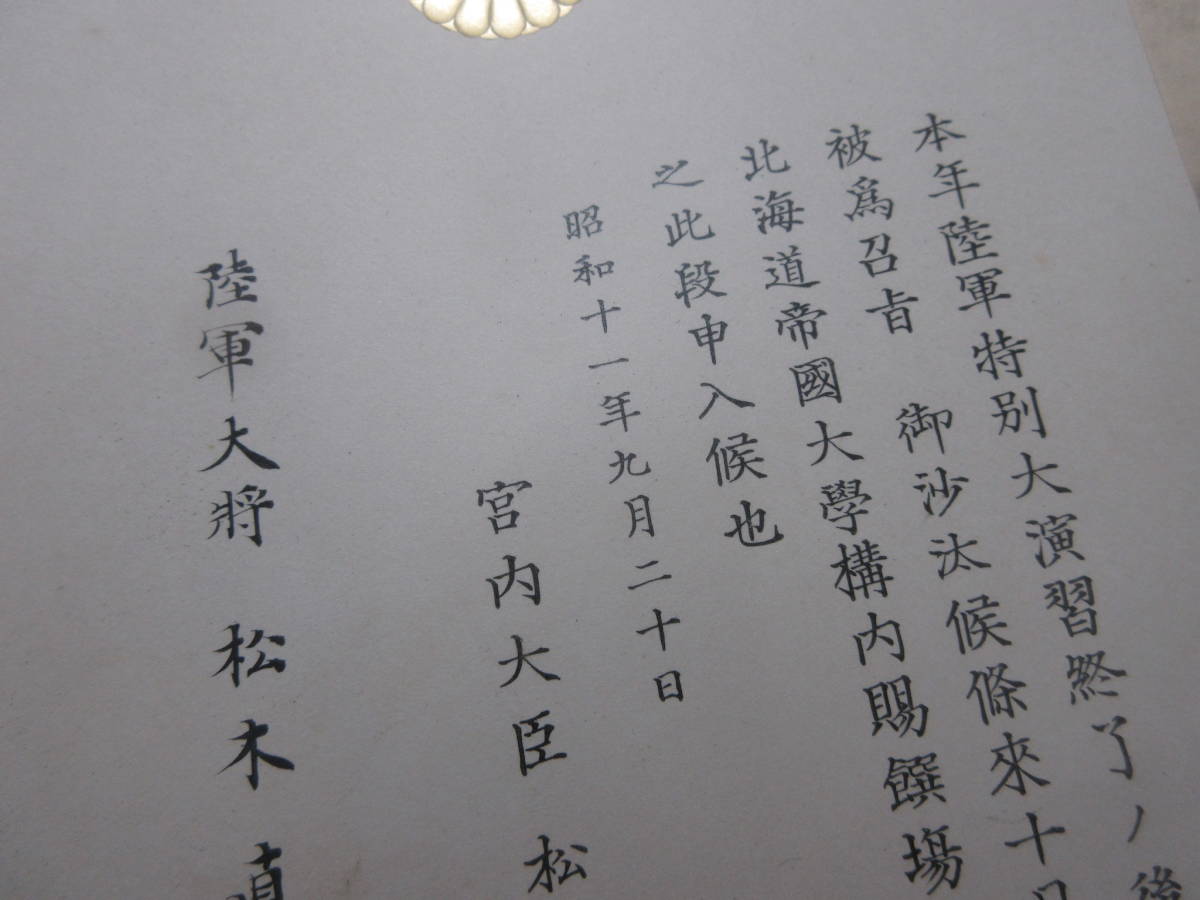 本年陸軍特別大演習終了ノ後
被爲召旨　御沙汰候條來十月
北海道帝國大學構内賜饌場
之此段申入候也
昭和十一年九月二十日
宮内大臣　松
陸軍大將　松木直